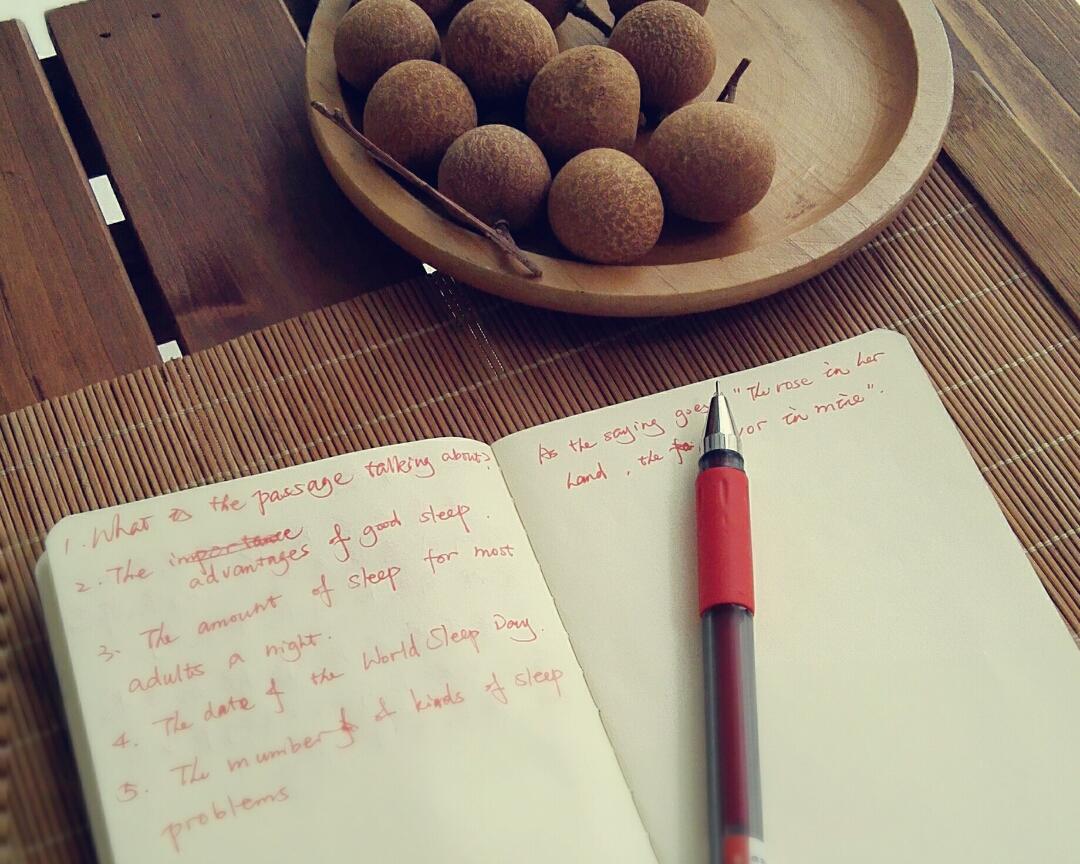 1. What is the passage talking about?
2. The importance
advantages of good sleep.
3. The amount of sleep for most
adults a night.
4. The date of the World Sleep Day.
5. The mumber of kinds of sleep
problems
As the saying goes "The rose in her
hand, the vor in mine".